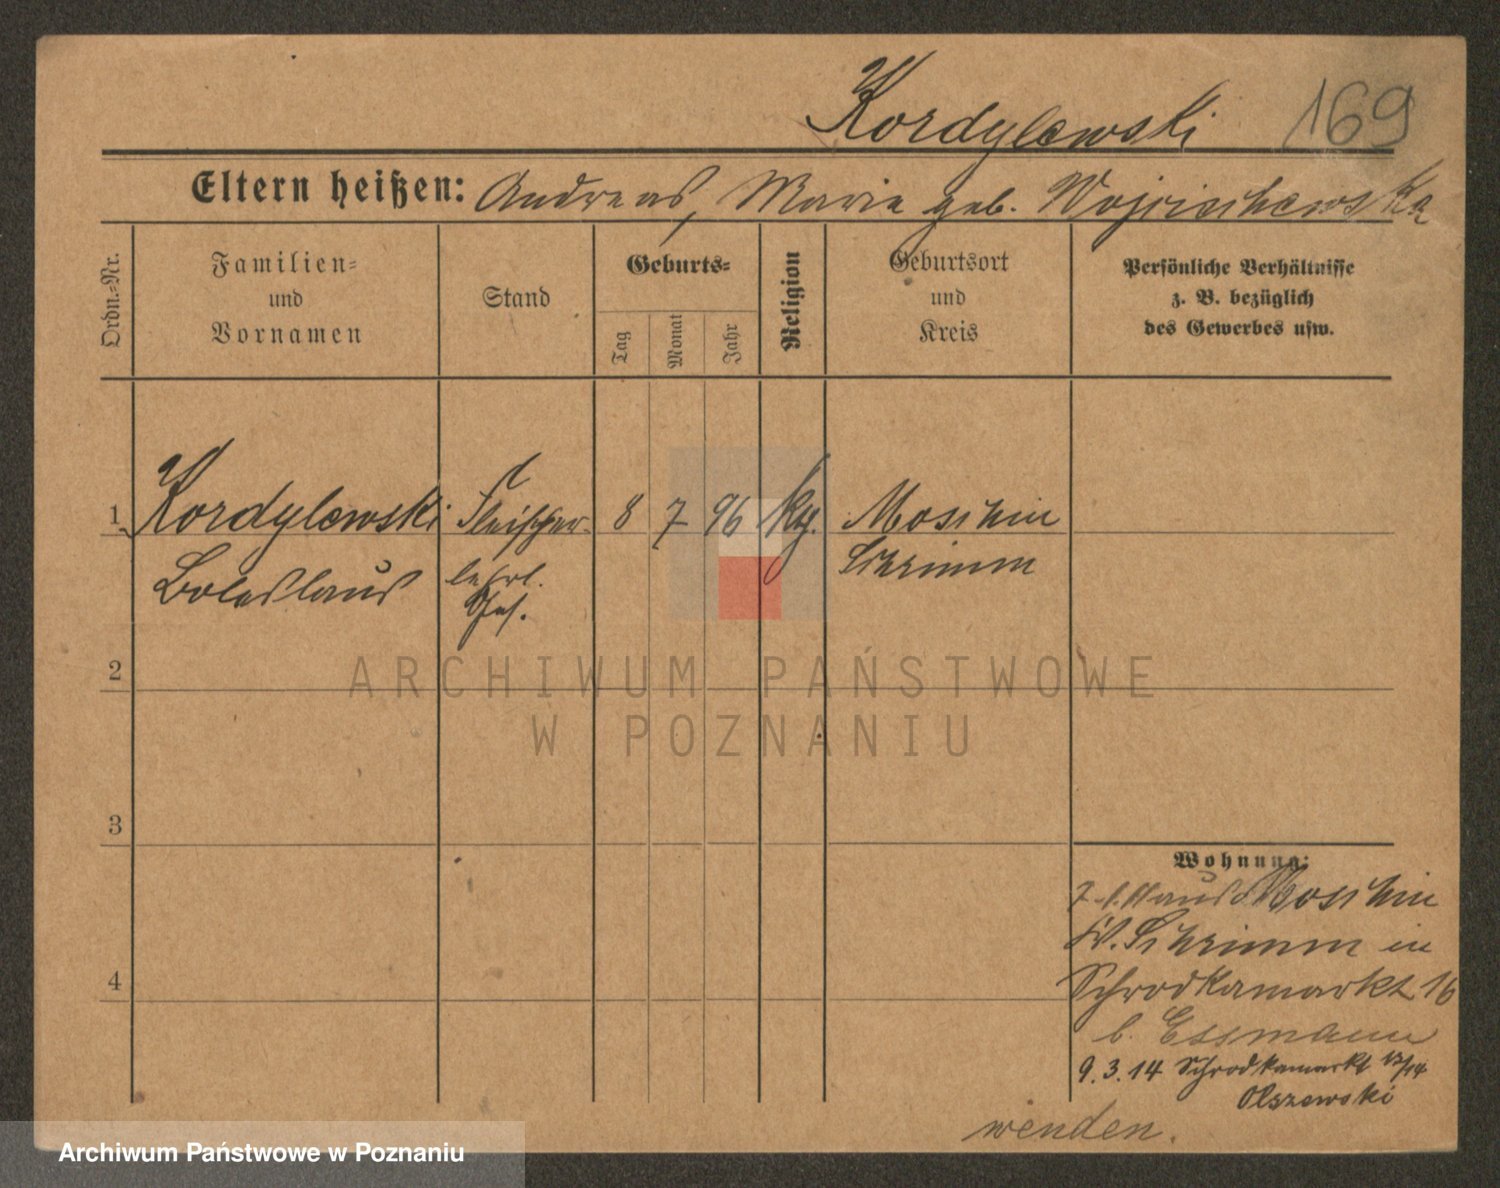 Kordylewski 169
Eltern heißen: Andreas, Marie geb. Wojciechowska
Ordn.-Nr.
Familien-
und
Vornamen
Stand
Geburts-
Tag
Monat
Jahr
Religion
Geburtsort
und
Kreis
Persönliche Verhältnisse
z. B. bezüglich
des Gewerbes usw.
1 Kordylewski Fleischer- 8 7 96 kg. Moschin
Boleslaus lehrl. Schrimm
Ges.
2
ARCHIWUM PAŃSTWOWE
W POZNANIU
3
4
Wohnung:
Moschin
Schrimm in
Schrodkamarkt 16
b. Essmann
9. 3. 14 Schrodkamarkt 13/14
Olszewski
wenden.
Archiwum Państwowe w Poznaniu